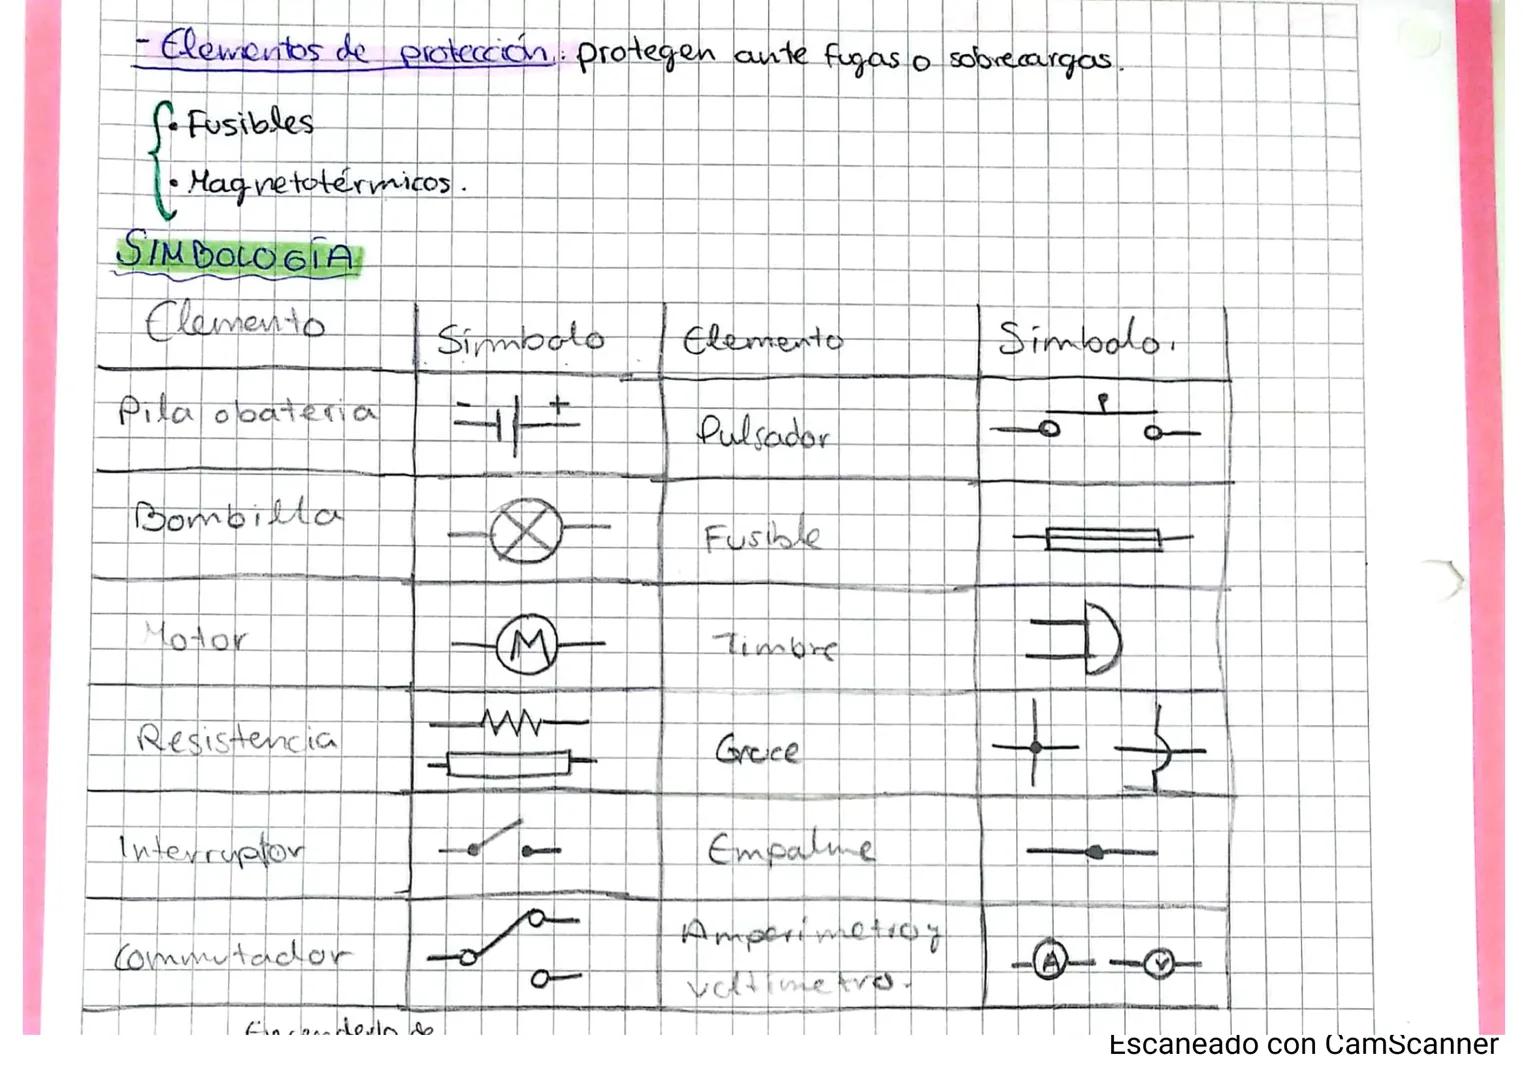 - Elementos de protección: protegen ante fugas o sobrecargas.
• Fusibles
• Magnetotérmicos.
SIMBOLOGÍA
Elemento Símbolo Elemento Símbolo.
Pila o batería - + Pulsador
Bombilla Fusible
Motor M Timbre
Resistencia Cruce
Interruptor Empalme
Conmutador Amperímetro y
voltímetro. A V
Escaneado con CamScanner